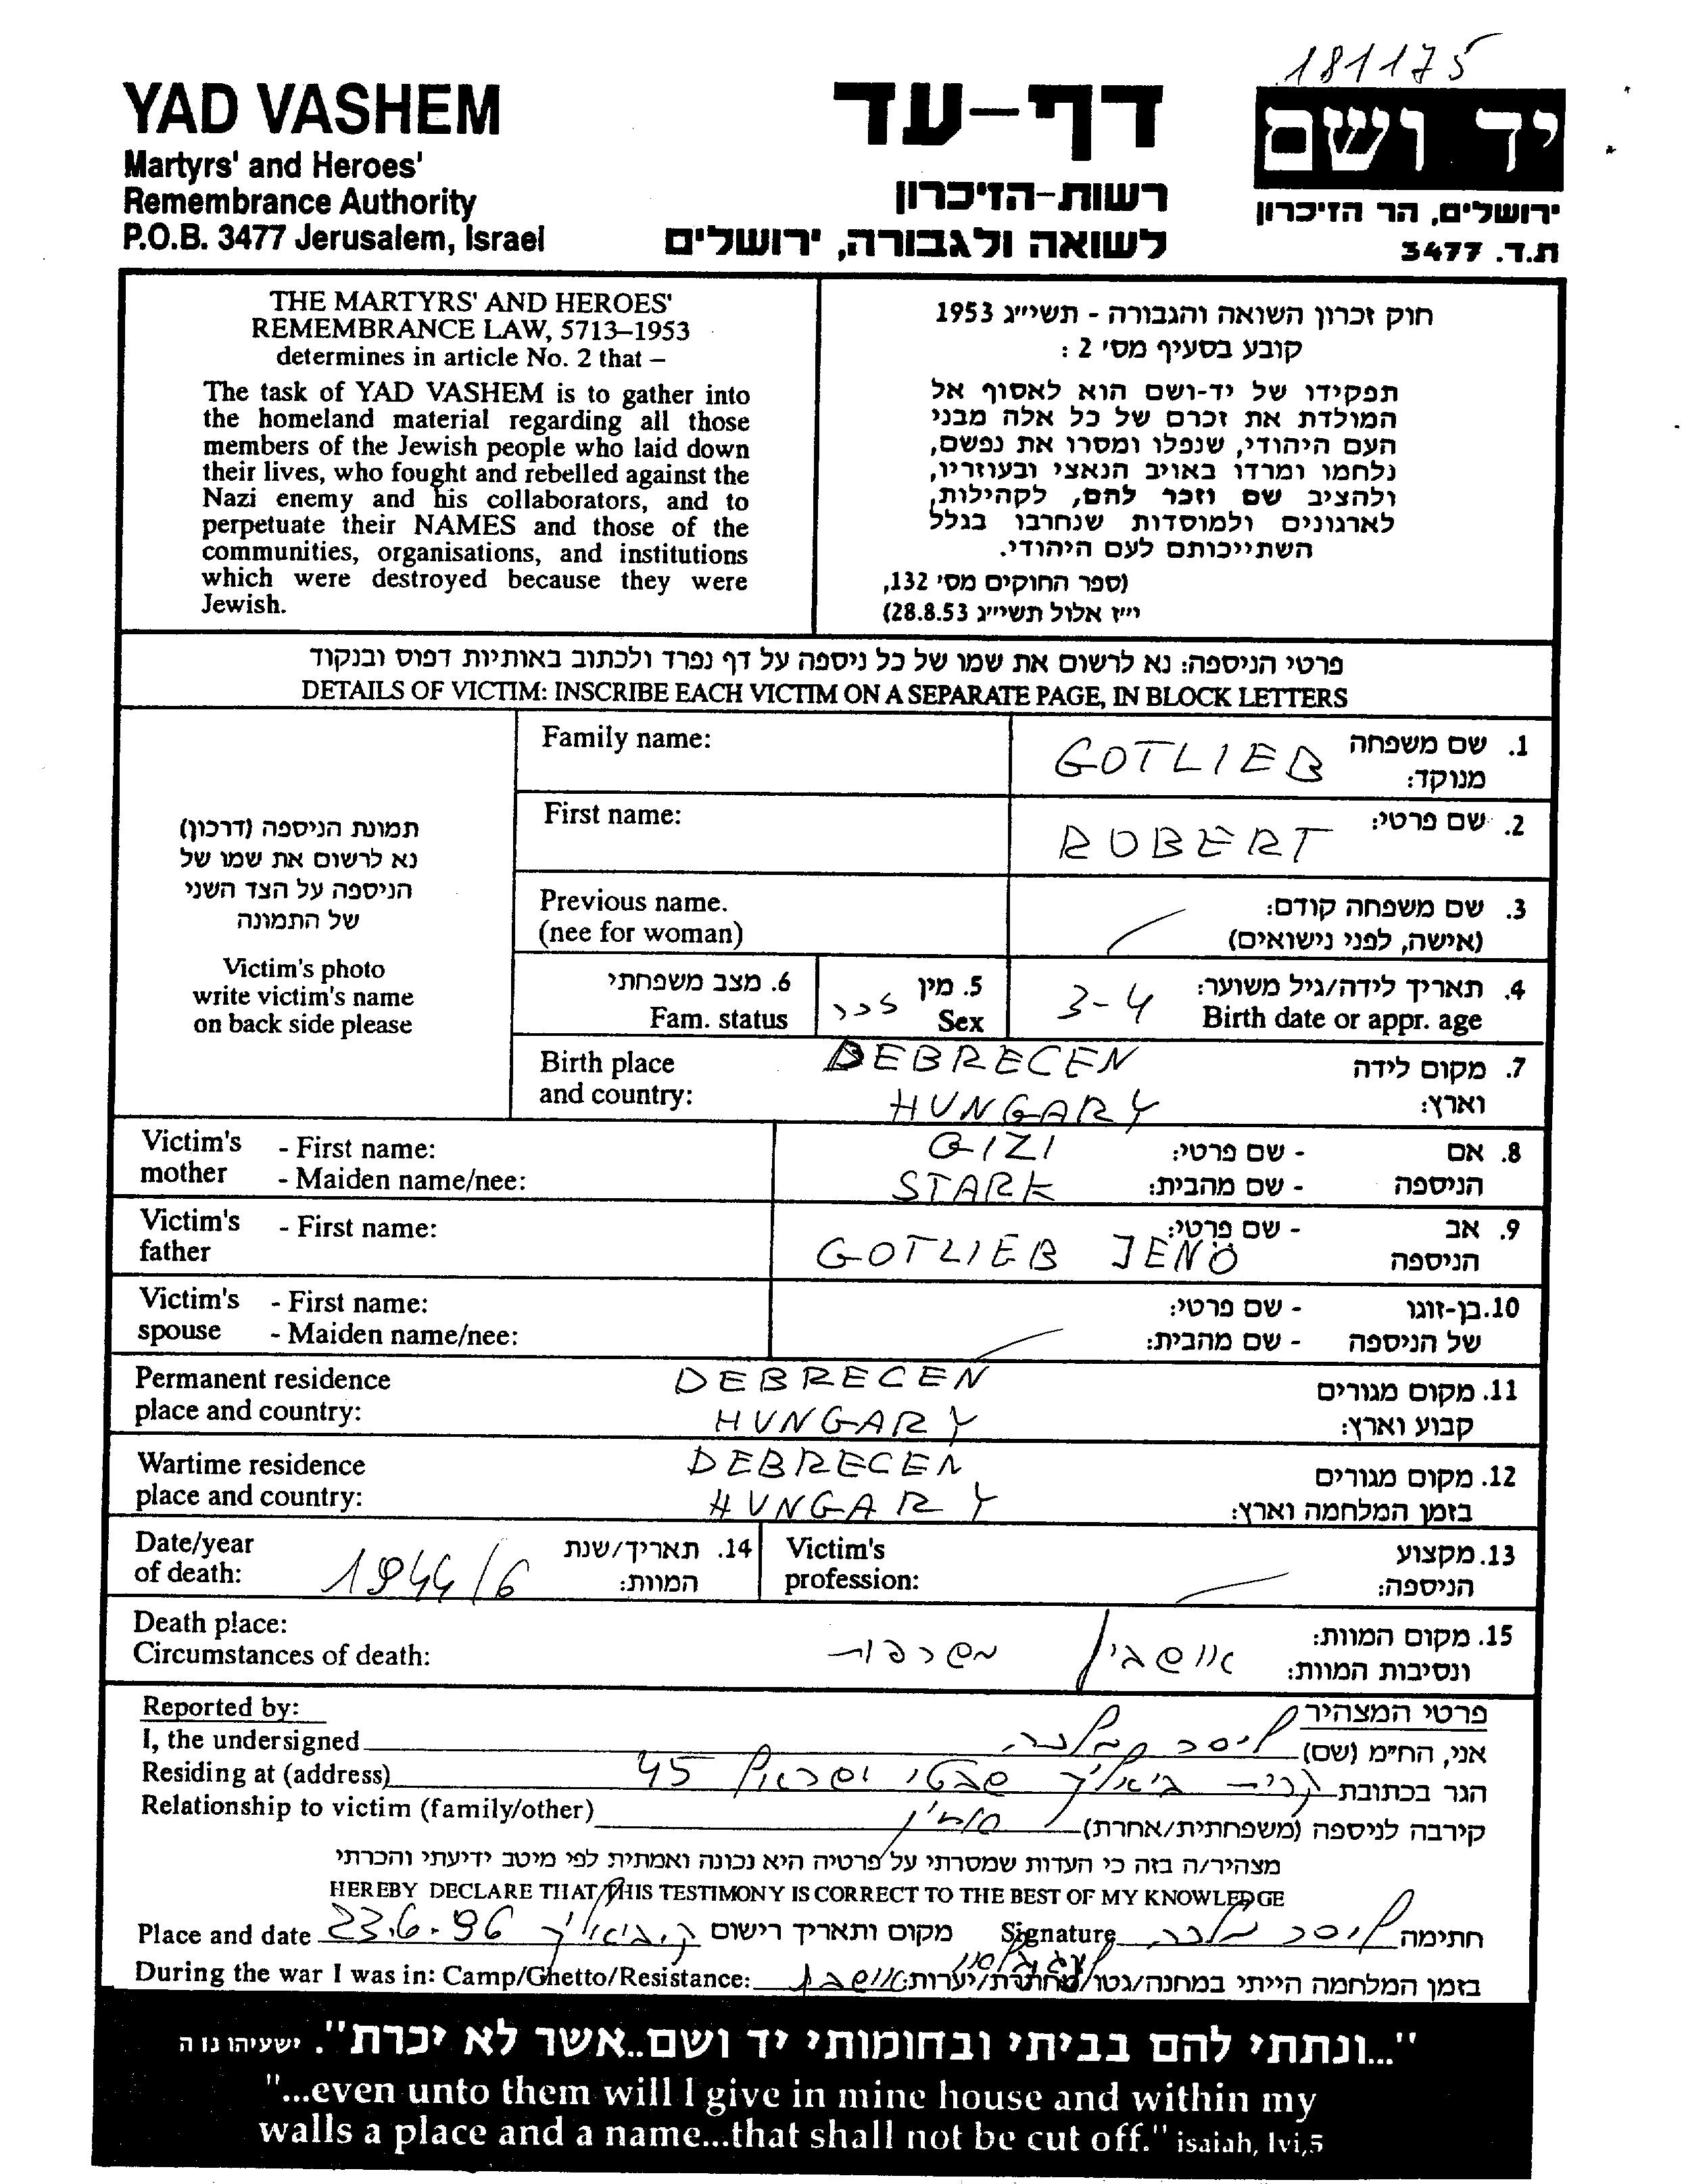 181175
YAD VASHEM
Martyrs' and Heroes'
Remembrance Authority
P.O.B. 3477 Jerusalem, Israel
דף-עד
רשות-הזיכרון
לשואה ולגבורה, ירושלים
יד ושם
ירושלים, הר הזיכרון
ת.ד. 3477
THE MARTYRS' AND HEROES'
REMEMBRANCE LAW, 5713–1953
determines in article No. 2 that –
The task of YAD VASHEM is to gather into
the homeland material regarding all those
members of the Jewish people who laid down
their lives, who fought and rebelled against the
Nazi enemy and his collaborators, and to
perpetuate their NAMES and those of the
communities, organisations, and institutions
which were destroyed because they were
Jewish.
חוק זכרון השואה והגבורה - תשי״ג 1953
קובע בסעיף מס׳ 2 :
תפקידו של יד-ושם הוא לאסוף אל
המולדת את זכרם של כל אלה מבני
העם היהודי, שנפלו ומסרו את נפשם,
נלחמו ומרדו באויב הנאצי ובעוזריו,
ולהציב שם וזכר להם, לקהילות,
לארגונים ולמוסדות שנחרבו בגלל
השתייכותם לעם היהודי.
(ספר החוקים מס׳ 132,
י״ז אלול תשי״ג 28.8.53)
פרטי הניספה: נא לרשום את שמו של כל ניספה על דף נפרד ולכתוב באותיות דפוס ובנקוד
DETAILS OF VICTIM: INSCRIBE EACH VICTIM ON A SEPARATE PAGE, IN BLOCK LETTERS
תמונת הניספה (דרכון)
נא לרשום את שמו של
הניספה על הצד השני
של התמונה
Victim's photo
write victim's name
on back side please
Family name: GOTLIEB 1. שם משפחה
מנוקד:
First name: ROBERT 2. שם פרטי:
Previous name. 3. שם משפחה קודם:
(nee for woman) (אישה, לפני נישואים)
6. מצב משפחתי 5. מין זכר 3-4 4. תאריך לידה/גיל משוער:
Fam. status Sex Birth date or appr. age
Birth place DEBRECEN 7. מקום לידה
and country: HUNGARY וארץ:
Victim's - First name: GIZI - שם פרטי: 8. אם
mother - Maiden name/nee: STARK - שם מהבית: הניספה
Victim's - First name: - שם פרטי: 9. אב
father GOTLIEB JENÖ הניספה
Victim's - First name: - שם פרטי: 10. בן-זוגו
spouse - Maiden name/nee: - שם מהבית: של הניספה
Permanent residence DEBRECEN 11. מקום מגורים
place and country: HUNGARY קבוע וארץ:
Wartime residence DEBRECEN 12. מקום מגורים
place and country: HUNGARY בזמן המלחמה וארץ:
Date/year 14. תאריך/שנת Victim's 13. מקצוע
of death: 1944/6 המוות: profession: הניספה:
Death place: 15. מקום המוות:
Circumstances of death: אושביץ משרפות ונסיבות המוות:
Reported by: פרטי המצהיר
I, the undersigned אני, הח״מ (שם)
Residing at (address) קרית ביאליק שבטי ישראל 45 הגר בכתובת
Relationship to victim (family/other) קירבה לניספה (משפחתית/אחרת)
מצהיר/ה בזה כי העדות שמסרתי על פרטיה היא נכונה ואמתית לפי מיטב ידיעתי והכרתי
HEREBY DECLARE THAT THIS TESTIMONY IS CORRECT TO THE BEST OF MY KNOWLEDGE
Place and date 23.6.96 ק. ביאליק מקום ותאריך רישום Signature חתימה
During the war I was in: Camp/Ghetto/Resistance: אושביץ בזמן המלחמה הייתי במחנה/גטו/מחתרת/יערות:
"...ונתתי להם בביתי ובחומותי יד ושם..אשר לא יכרת". ישעיהו נו ה
"...even unto them will I give in mine house and within my
walls a place and a name...that shall not be cut off." isaiah, lvi,5